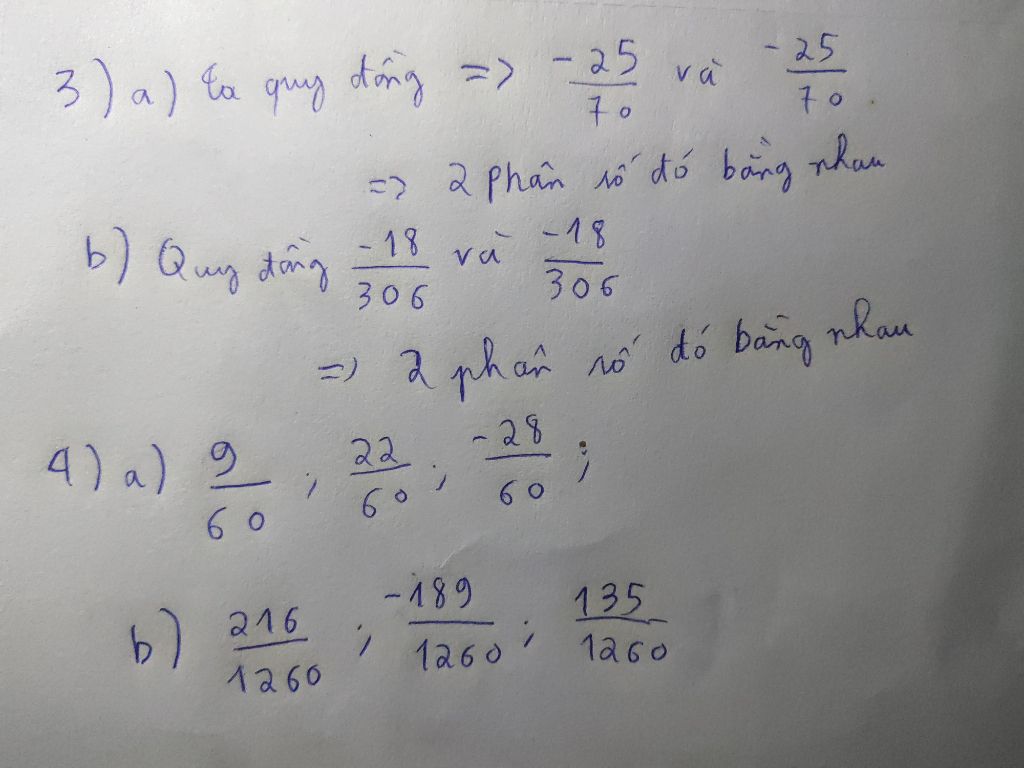 3) a) Ta quy đồng => -25/70 và -25/70.
=> 2 phân số đó bằng nhau
b) Quy đồng -18/306 và -18/306
=> 2 phân số đó bằng nhau
4) a) 9/60 ; 22/60 ; -28/60 ;
b) 216/1260 ; -189/1260 ; 135/1260